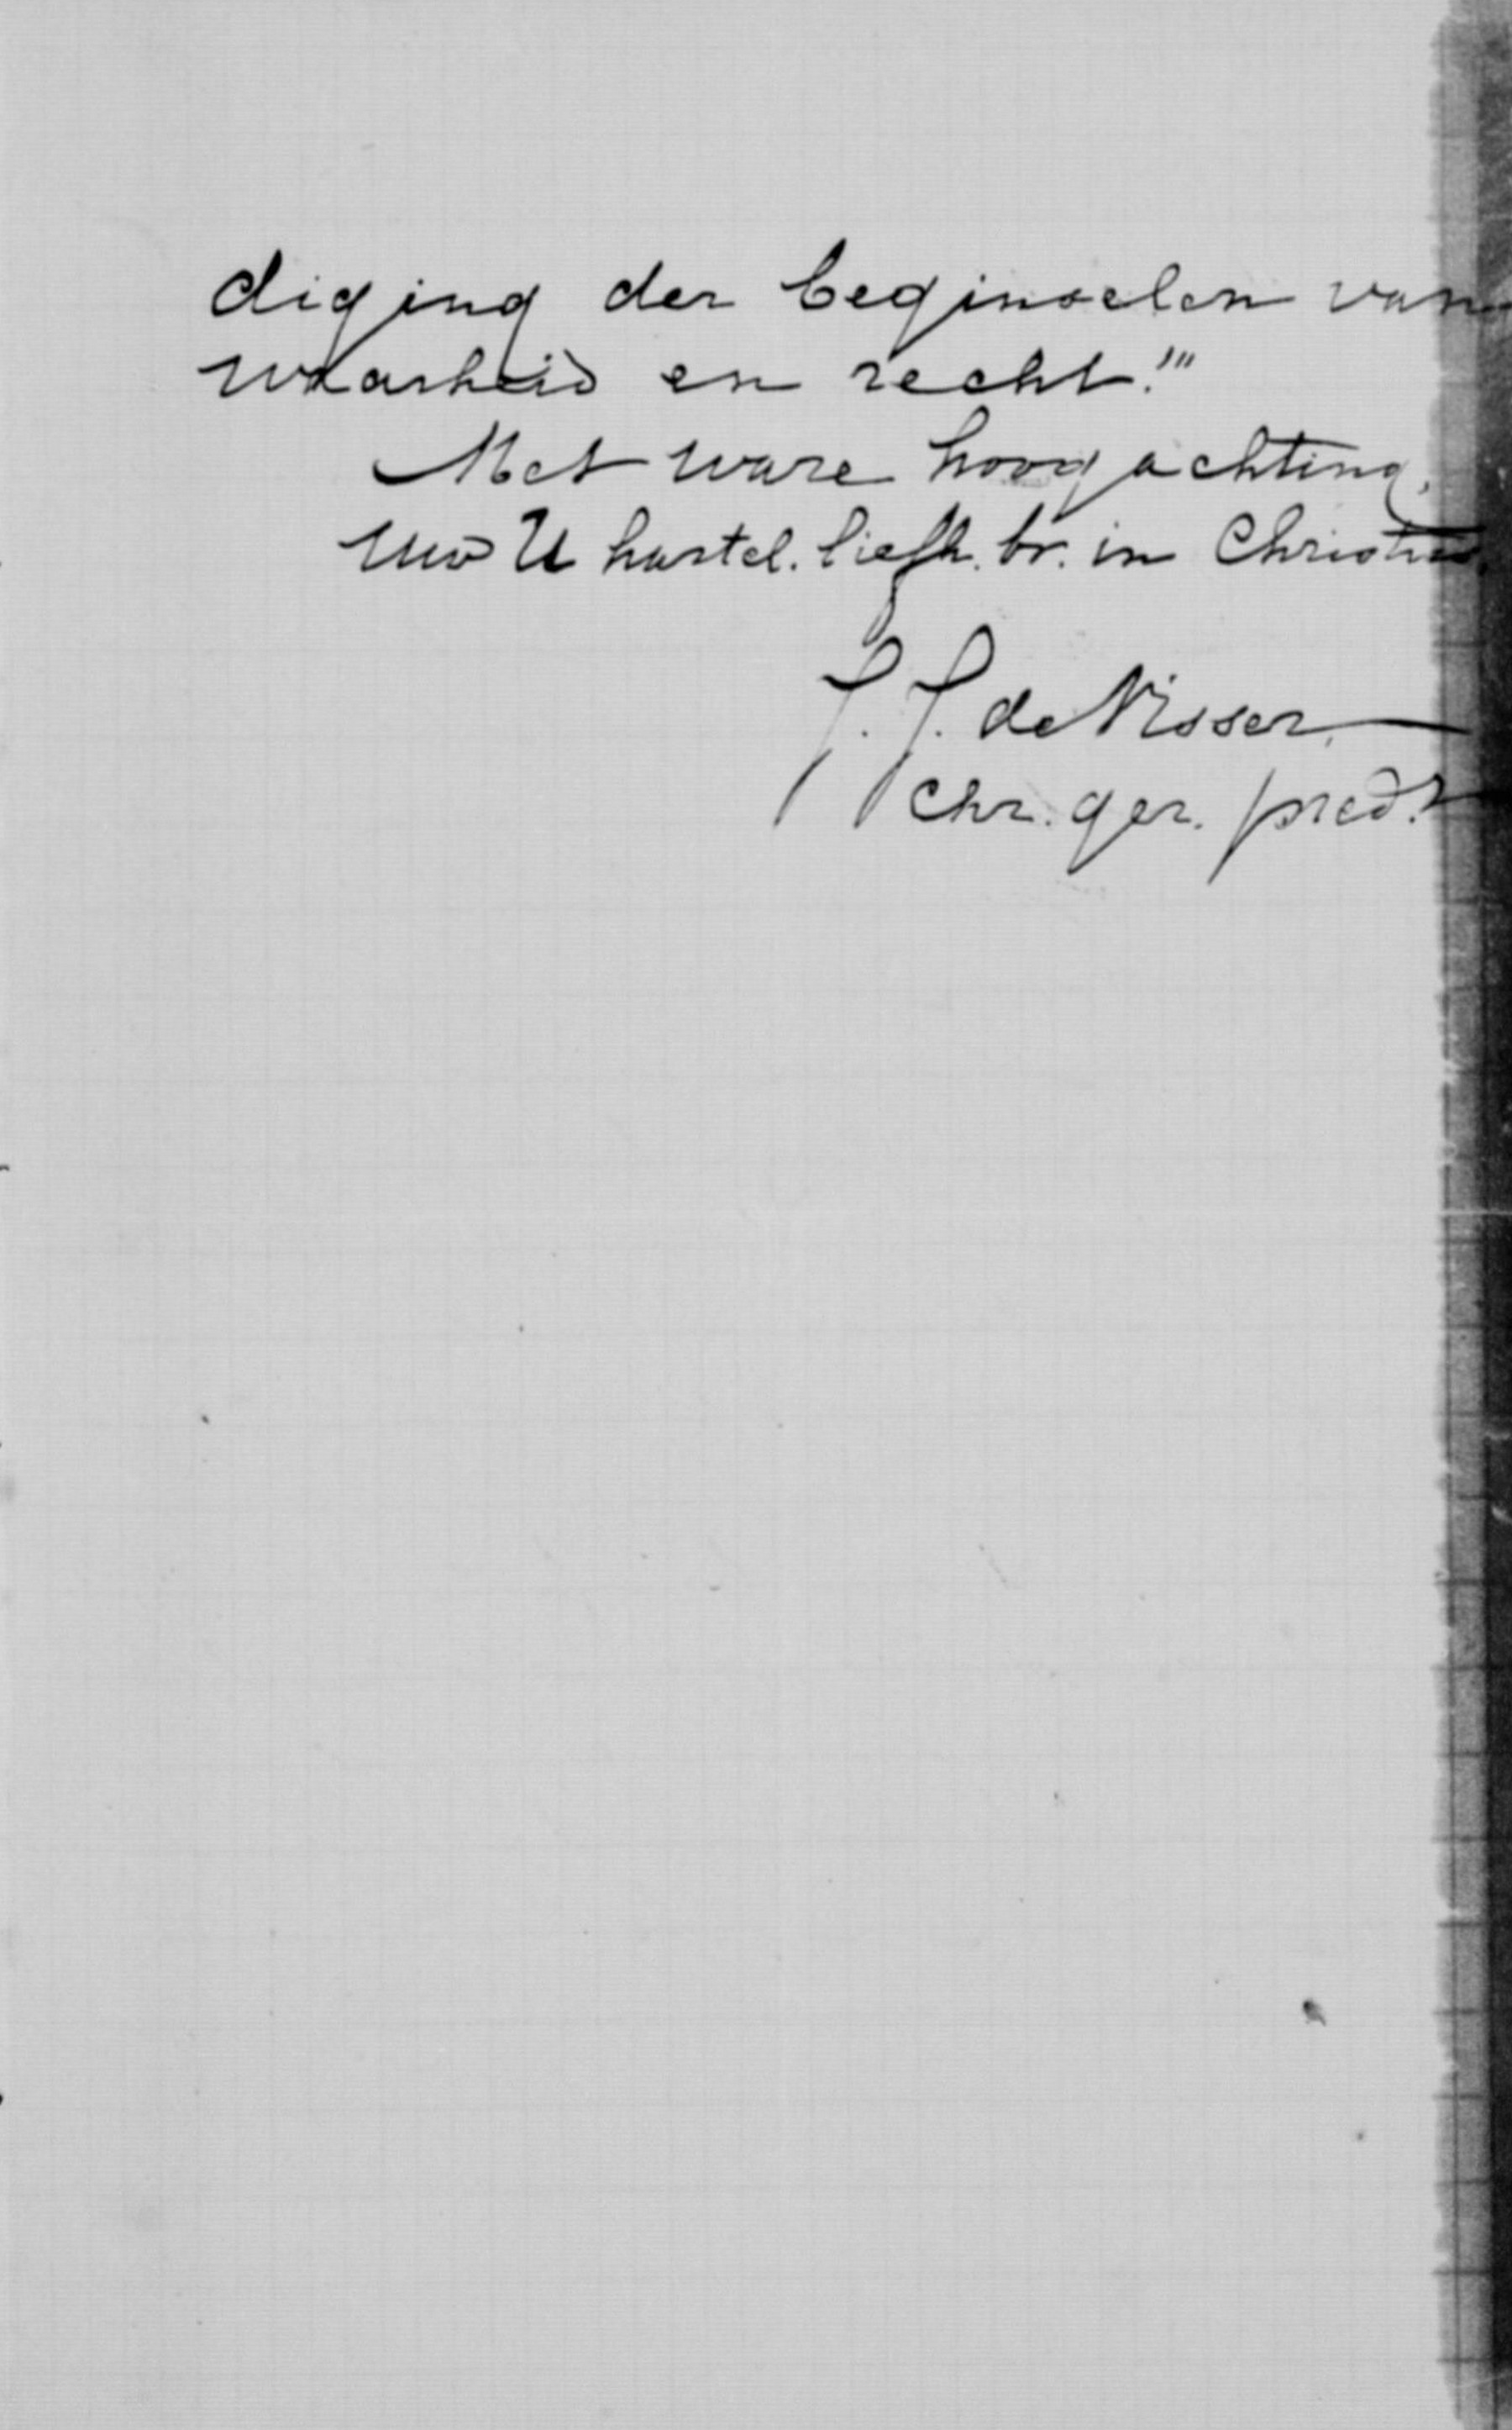 diging der beginselen van
waarheid en recht!"
Met ware hoogachting,
Uw U hartel. liefh. br. in Christus.
J. J. de Visser.
Chr. ger. pred.t